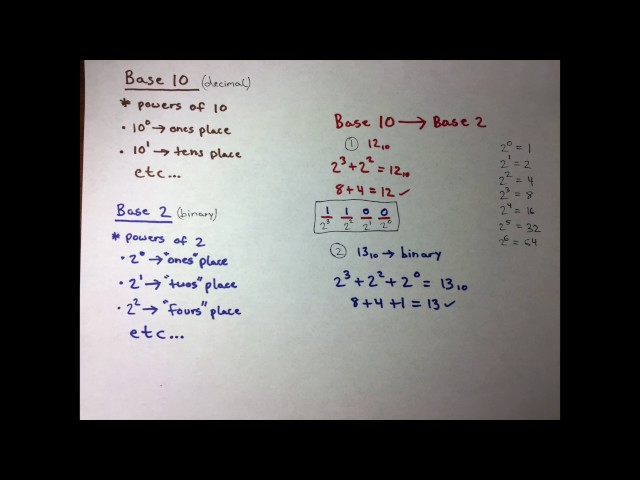 Base 10 (decimal)
* powers of 10
• 10⁰ → ones place
• 10¹ → tens place
etc...
Base 2 (binary)
* powers of 2
• 2⁰ → "ones" place
• 2¹ → "twos" place
• 2² → "fours" place
etc...
Base 10 → Base 2
① 12₁₀
2³ + 2² = 12₁₀
8 + 4 = 12 ✓
1 1 0 0
2³ 2² 2¹ 2⁰
② 13₁₀ → binary
2³ + 2² + 2⁰ = 13₁₀
8 + 4 + 1 = 13 ✓
2⁰ = 1
2¹ = 2
2² = 4
2³ = 8
2⁴ = 16
2⁵ = 32
2⁶ = 64